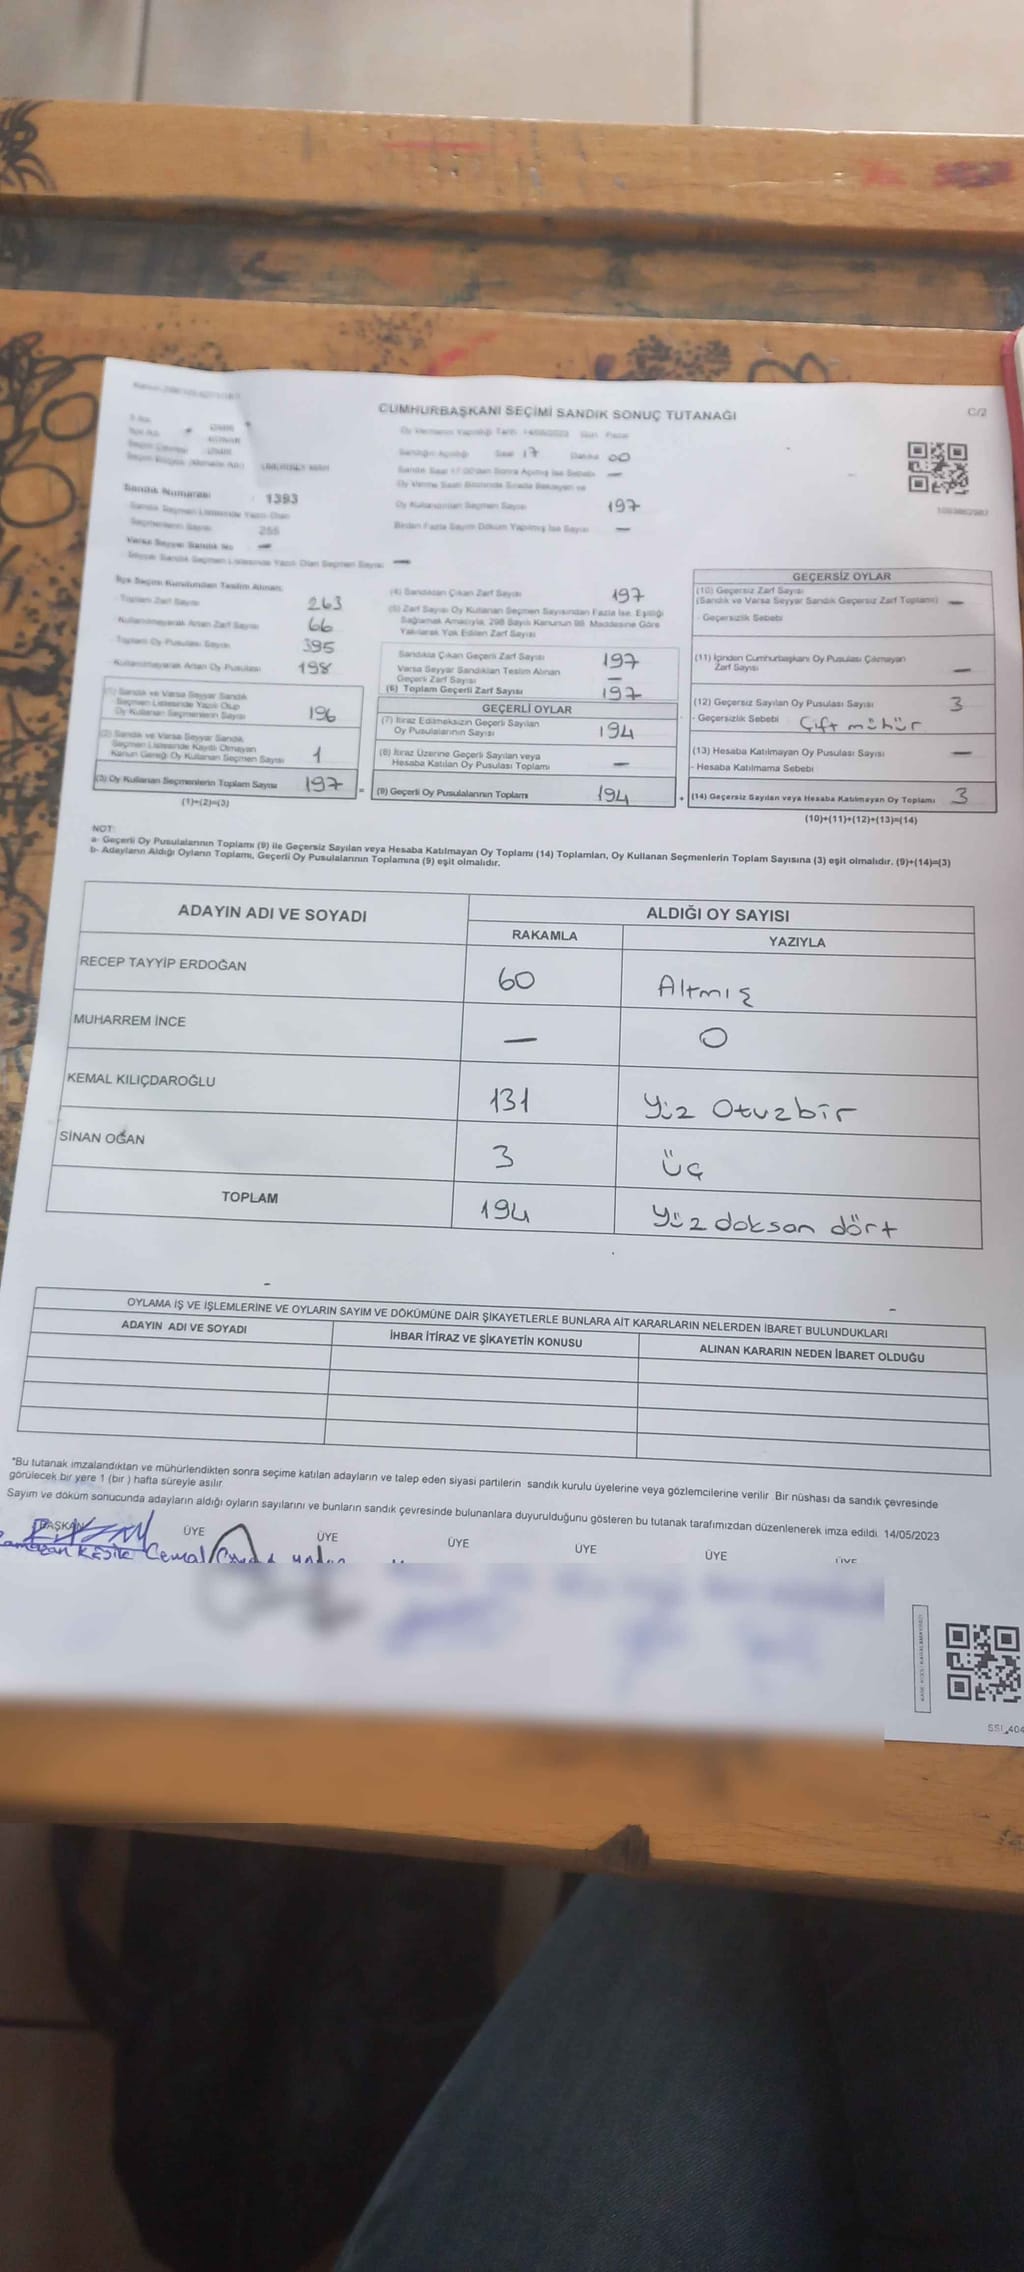 CUMHURBAŞKANI SEÇİMİ SANDIK SONUÇ TUTANAĞI
C/2
Saat 17 Dakika 00
Sandık Numarası : 1393
Oy Kullanan Seçmen Sayısı 197
Birden Fazla Sayım Döküm Yapılmış İse Sayısı —
Seçmenlerin Sayısı 255
Varsa Seyyar Sandık No —
Seyyar Sandık Seçmen Listesinde Yazılı Olan Seçmen Sayısı —
İlçe Seçim Kurulundan Teslim Alınan;
Toplam Zarf Sayısı 263
Kullanılmayarak Artan Zarf Sayısı 66
Toplam Oy Pusulası Sayısı 395
Kullanılmayarak Artan Oy Pusulası 198
(1) Sandık ve Varsa Seyyar Sandık
Seçmen Listesinde Yazılı Olup
Oy Kullanan Seçmenlerin Sayısı 196
(2) Sandık ve Varsa Seyyar Sandık
Seçmen Listesinde Kayıtlı Olmayan
Kanun Gereği Oy Kullanan Seçmen Sayısı 1
(3) Oy Kullanan Seçmenlerin Toplam Sayısı 197
(1)+(2)=(3)
(4) Sandıktan Çıkan Zarf Sayısı 197
(5) Zarf Sayısı Oy Kullanan Seçmen Sayısından Fazla İse, Eşitliği
Sağlamak Amacıyla, 298 Sayılı Kanunun 98. Maddesine Göre
Yakılarak Yok Edilen Zarf Sayısı
Sandıkta Çıkan Geçerli Zarf Sayısı 197
Varsa Seyyar Sandıktan Teslim Alınan
Geçerli Zarf Sayısı —
(6) Toplam Geçerli Zarf Sayısı 197
GEÇERLİ OYLAR
(7) İtiraz Edilmeksizin Geçerli Sayılan
Oy Pusulalarının Sayısı 194
(8) İtiraz Üzerine Geçerli Sayılan veya
Hesaba Katılan Oy Pusulası Toplamı —
= (9) Geçerli Oy Pusulalarının Toplamı 194
GEÇERSİZ OYLAR
(10) Geçersiz Zarf Sayısı
(Sandık ve Varsa Seyyar Sandık Geçersiz Zarf Toplamı) —
- Geçersizlik Sebebi
(11) İçinden Cumhurbaşkanı Oy Pusulası Çıkmayan
Zarf Sayısı —
(12) Geçersiz Sayılan Oy Pusulası Sayısı 3
- Geçersizlik Sebebi Çift mühür
(13) Hesaba Katılmayan Oy Pusulası Sayısı —
- Hesaba Katılmama Sebebi
+ (14) Geçersiz Sayılan veya Hesaba Katılmayan Oy Toplamı 3
(10)+(11)+(12)+(13)=(14)
NOT:
a- Geçerli Oy Pusulalarının Toplamı (9) ile Geçersiz Sayılan veya Hesaba Katılmayan Oy Toplamı (14) Toplamları, Oy Kullanan Seçmenlerin Toplam Sayısına (3) eşit olmalıdır. (9)+(14)=(3)
b- Adayların Aldığı Oyların Toplamı, Geçerli Oy Pusulalarının Toplamına (9) eşit olmalıdır.
ADAYIN ADI VE SOYADI ALDIĞI OY SAYISI
RAKAMLA YAZIYLA
RECEP TAYYİP ERDOĞAN 60 Altmış
MUHARREM İNCE — 0
KEMAL KILIÇDAROĞLU 131 Yüz Otuzbir
SİNAN OĞAN 3 üç
TOPLAM 194 Yüz doksan dört
OYLAMA İŞ VE İŞLEMLERİNE VE OYLARIN SAYIM VE DÖKÜMÜNE DAİR ŞİKAYETLERLE BUNLARA AİT KARARLARIN NELERDEN İBARET BULUNDUKLARI
ADAYIN ADI VE SOYADI İHBAR İTİRAZ VE ŞİKAYETİN KONUSU ALINAN KARARIN NEDEN İBARET OLDUĞU
"Bu tutanak imzalandıktan ve mühürlendikten sonra seçime katılan adayların ve talep eden siyasi partilerin sandık kurulu üyelerine veya gözlemcilerine verilir. Bir nüshası da sandık çevresinde
görülecek bir yere 1 (bir) hafta süreyle asılır.
Sayım ve döküm sonucunda adayların aldığı oyların sayılarını ve bunların sandık çevresinde bulunanlara duyurulduğunu gösteren bu tutanak tarafımızdan düzenlenerek imza edildi. 14/05/2023
BAŞKAN ÜYE ÜYE ÜYE ÜYE ÜYE ÜYE
Cemal